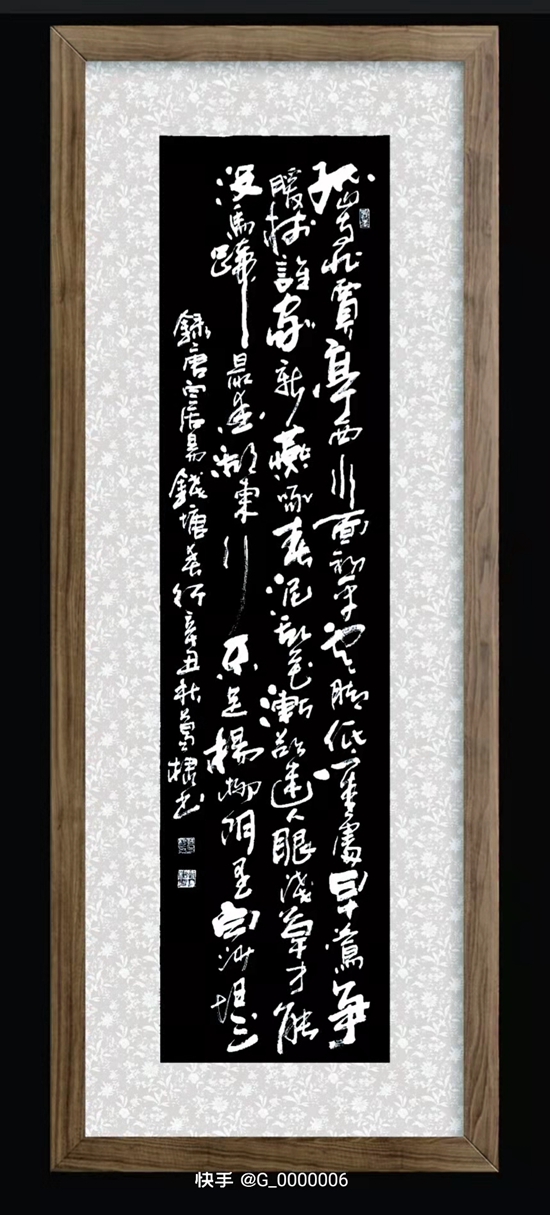 孤山寺北賈亭西水面初平雲腳低幾處早鶯爭
暖樹誰家新燕啄春泥亂花漸欲迷人眼淺草才能
沒馬蹄最愛湖東行不足楊柳陰里白沙堤
錄唐白居易錢塘春行辛丑秋書
快手 @G_0000006